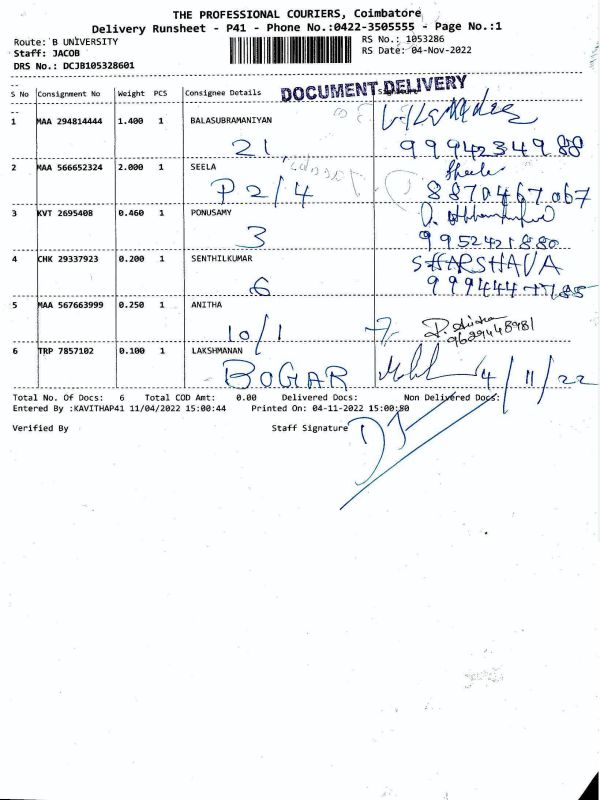 THE PROFESSIONAL COURIERS, Coimbatore
Delivery Runsheet - P41 - Phone No.:0422-3505555 - Page No.:1
Route: B UNIVERSITY RS No.: 1053286
Staff: JACOB RS Date: 04-Nov-2022
DRS No.: DCJB105328601
DOCUMENT DELIVERY
S No Consignment No Weight PCS Consignee Details Signature
1 MAA 294814444 1.400 1 BALASUBRAMANIYAN
21 9994234988
2 MAA 566652324 2.000 1 SEELA Sheela
P2/4 8870467067
3 KVT 2695408 0.460 1 PONUSAMY
3 9952421880
4 CHK 29337923 0.200 1 SENTHILKUMAR
6
5 MAA 567663999 0.250 1 ANITHA
10/1 9629448981
6 TRP 7857102 0.100 1 LAKSHMANAN
BOGAR 4/11/22
Total No. Of Docs: 6 Total COD Amt: 0.00 Delivered Docs: Non Delivered Docs:
Entered By :KAVITHAP41 11/04/2022 15:00:44 Printed On: 04-11-2022 15:00:80
Verified By Staff Signature